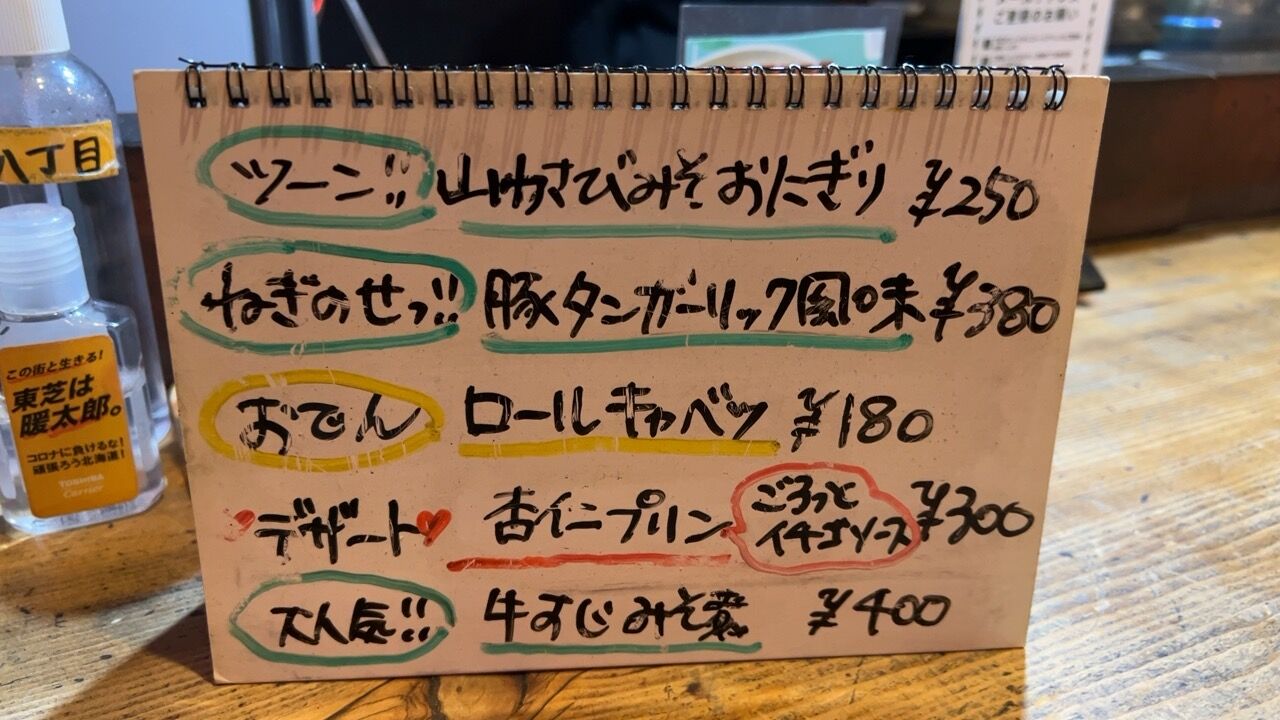 ツーン!! 山わさびみそおにぎり ¥250
ねぎのせっ!! 豚タンガーリック風味 ¥380
おでん ロールキャベツ ¥180
デザート 杏仁プリン ごろっと イチゴソース ¥300
大人気!! 牛すじみそ煮 ¥400
八丁目
この街と生きる!
東芝は
暖太郎。
コロナに負けるな!
頑張ろう北海道!
TOSHIBA
Carrier